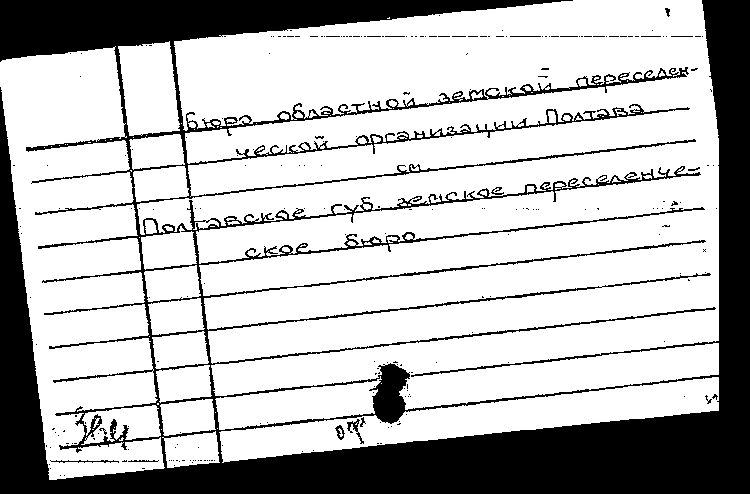 Бюро областной земской переселен-
ческой организации. Полтава
см.
Полтавское губ. земское переселенче-
ское бюро